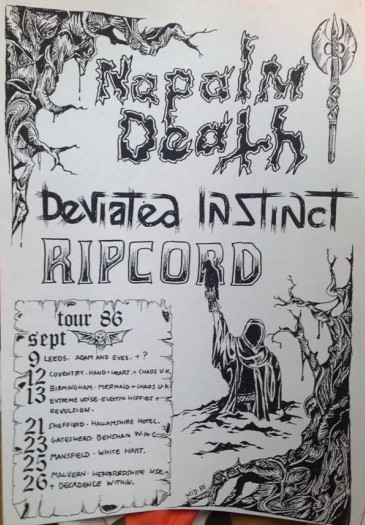 Napalm
Death
Deviated Instinct
RIPCORD
tour 86
sept
9 LEEDS. ADAM AND EVES. + ?
12 COVENTRY. HAND + HEART. + CHAOS U.K.
13 BIRMINGHAM. MERMAID + CHAOS U.K.
EXTREME NOISE. ELECTRO HIPPIES +
REVULSION.
21 SHEFFIELD. HALLAMSHIRE HOTEL.
23 GATESHEAD. BENSHAM W.M.C.
25 MANSFIELD. WHITE HART.
26 MALVERN. HEREFORDSHIRE HSE.
+ DECADENCE WITHIN.
MID 86